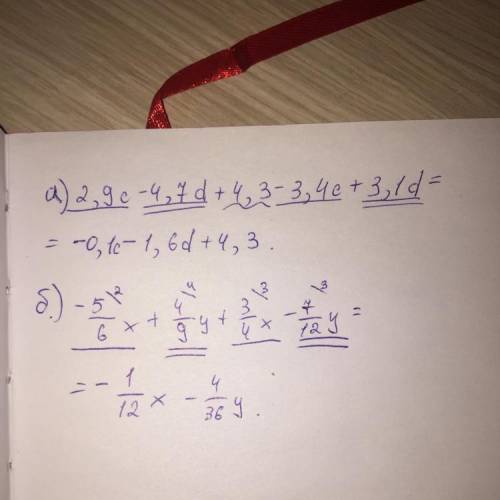 а) 2,9c - 4,7d + 4,3 - 3,4c + 3,1d =
= -0,1c - 1,6d + 4,3.
б.) -5/6^2 x + 4/9^4 y + 3/4^3 x - 7/12^3 y =
= - 1/12 x - 4/36 y.